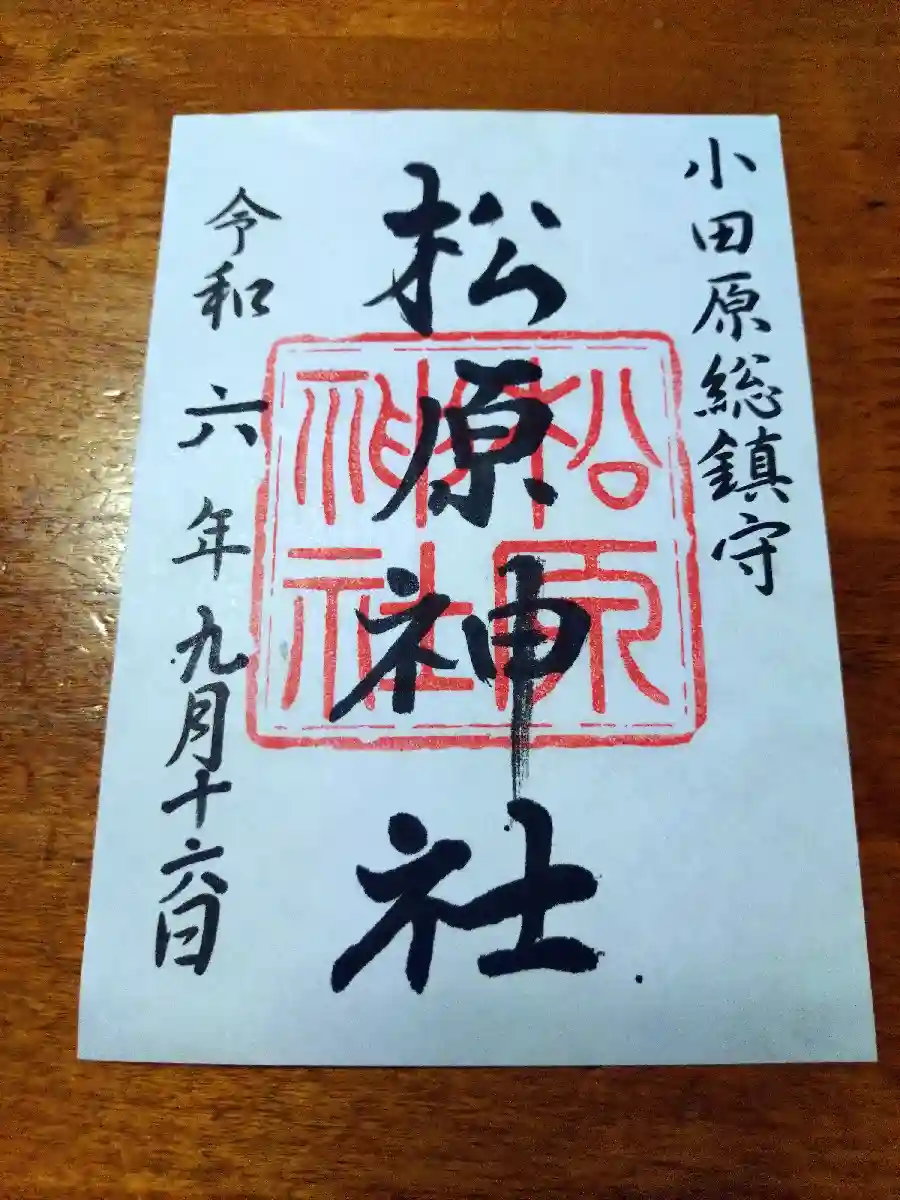 小田原総鎮守
松原神社
松原
神社
令和六年九月十六日